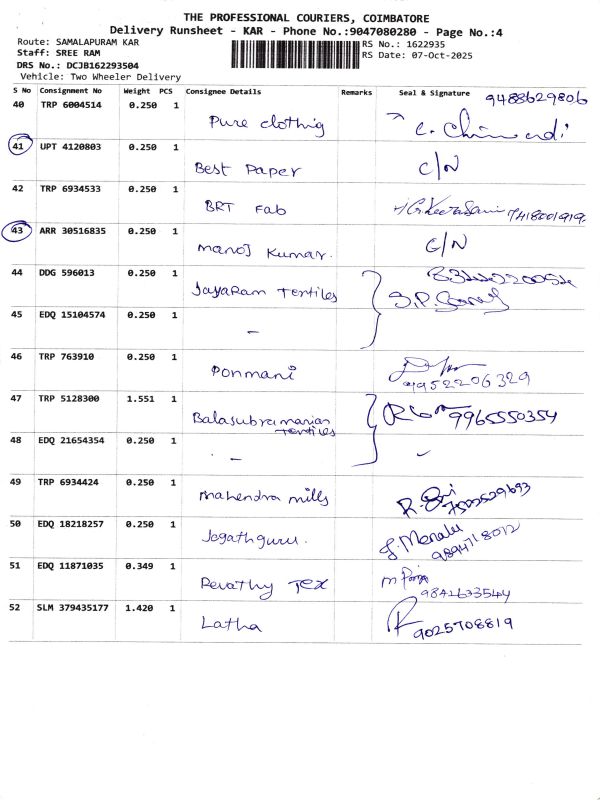 THE PROFESSIONAL COURIERS, COIMBATORE
Delivery Runsheet - KAR - Phone No.:9047080280 - Page No.:4
Route: SAMALAPURAM KAR
RS No.: 1622935
Staff: SREE RAM
RS Date: 07-Oct-2025
DRS No.: DCJB162293504
Vehicle: Two Wheeler Delivery
S No Consignment No Weight PCS Consignee Details Remarks Seal & Signature 9488629806
40 TRP 6004514 0.250 1 Pure clothig
41 UPT 4120803 0.250 1 Best Paper C/N
42 TRP 6934533 0.250 1 BRT Fab
43 ARR 30516835 0.250 1 Manoj Kumar. C/N
44 DDG 596013 0.250 1 Jayaram Textiles
45 EDQ 15104574 0.250 1 -
46 TRP 763910 0.250 1 Ponmani
9952206329
47 TRP 5128300 1.551 1 Balasubramanian Textiles 9965550354
48 EDQ 21654354 0.250 1 -
49 TRP 6934424 0.250 1 Mahendra mills
50 EDQ 18218257 0.250 1 Jagathguru.
9894718012
51 EDQ 11871035 0.349 1 Revathy Tex
9841633544
52 SLM 379435177 1.420 1 Latha
9025708819